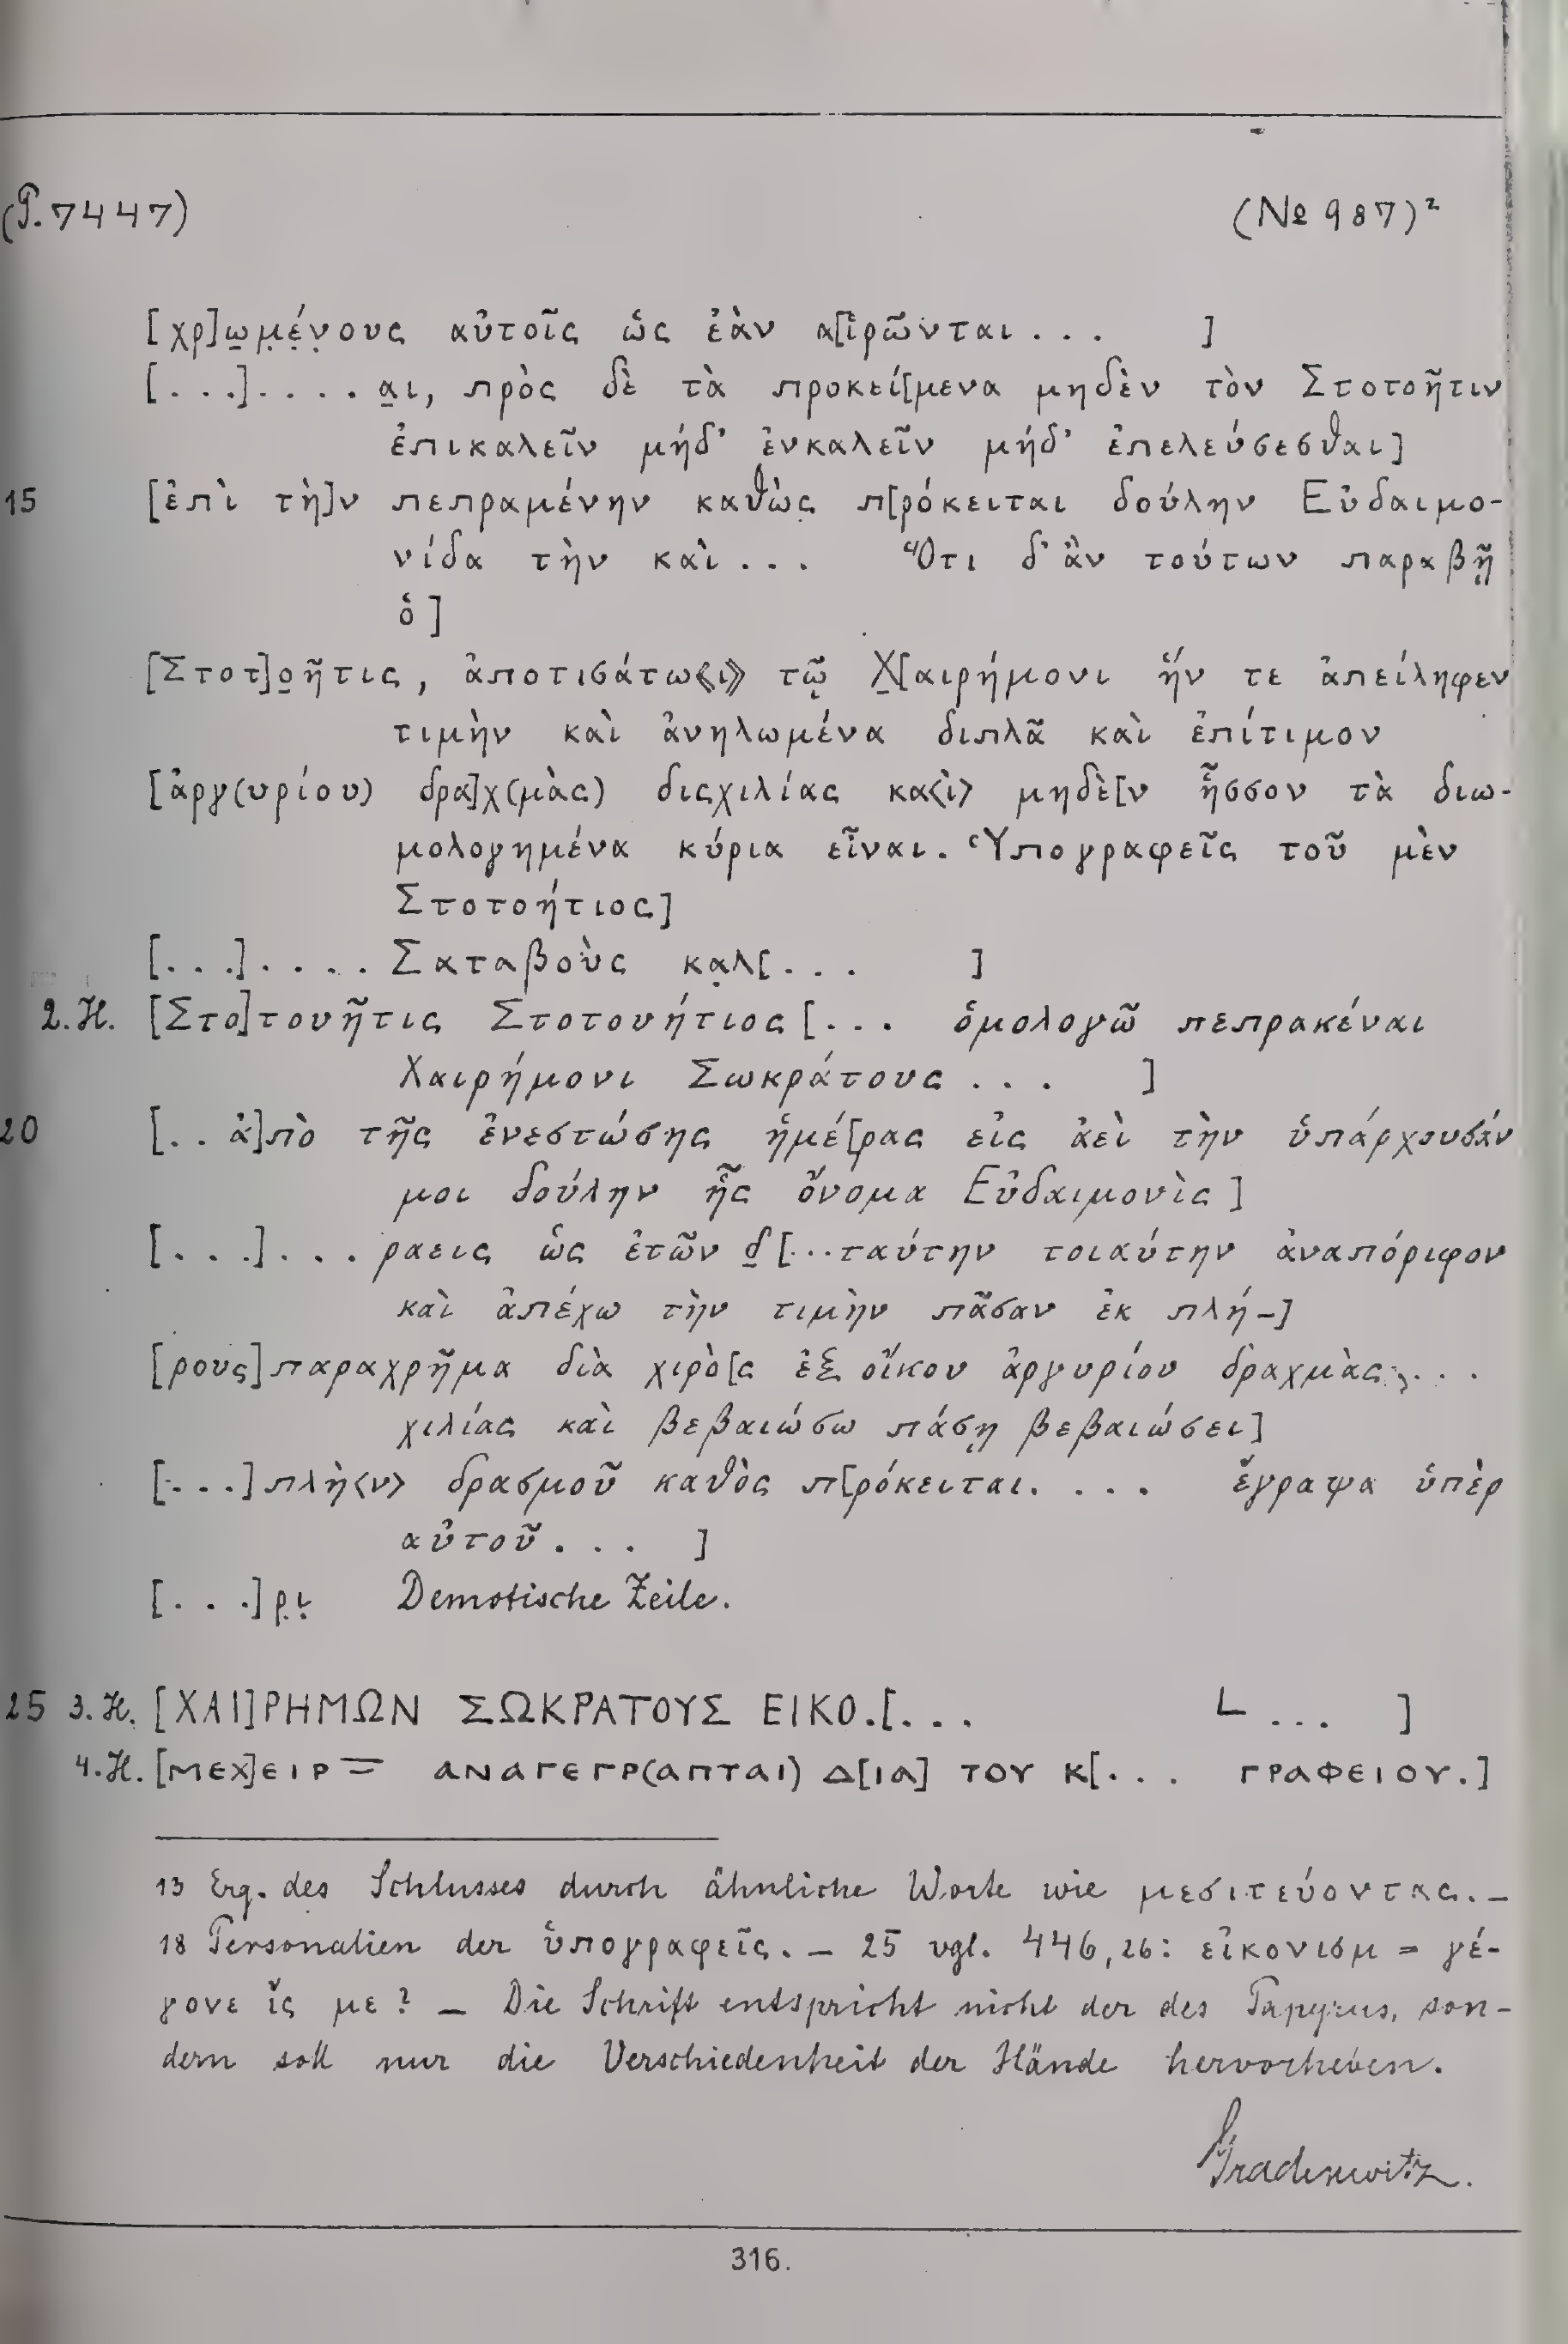 (P. 7447) (№ 987)²
[χρ]ω̣μ̣έ̣ν̣ους αὐτοῖς ὡς ἐὰν α[ἱρῶνται . . . ]
[. . .] . . . . α̣ι, πρὸς δὲ τὰ προκεί[μενα μηδὲν τὸν Στοτοῆτιν
ἐπικαλεῖν μήδ' ἐνκαλεῖν μήδ' ἐπελεύσεσθαι]
15 [ἐπὶ τὴ]ν πεπραμένην καθὼς π[ρόκειται δούλην Εὐδαιμο-
νίδα τὴν καὶ . . . Ὅτι δ' ἂν τούτων παραβῇ
ὁ]
[Στοτ]ο̣ῆτις, ἀποτισάτω⟪ι⟫ τῷ Χ̣[αιρήμονι ἥν τε ἀπείληφεν
τιμὴν καὶ ἀνηλωμένα διπλᾶ καὶ ἐπίτιμον
[ἀργ(υρίου) δρα]χ(μὰς) διςχιλίας κα<ὶ> μηδὲ[ν ἧσσον τὰ διω-
μολογημένα κύρια εἶναι. Ὑπογραφεῖς τοῦ μὲν
Στοτοήτιος]
[. . .] . . . . Σαταβοὺς κα̣λ[. . . ]
2. H. [Στο]τουῆτις Στοτουήτιος [. . . ὁμολογῶ πεπρακέναι
Χαιρήμονι Σωκράτους . . . ]
20 [. . ἀ]πὸ τῆς ἐνεστώσης ἡμέ[ρας εἰς ἀεὶ τὴν ὑπάρχουσάν
μοι δούλην ἧς ὄνομα Εὐδαιμονὶς]
[. . .] . . . ραεις ὡς ἐτῶν δ̣ [...ταύτην τοιαύτην ἀναπόριφον
καὶ ἀπέχω τὴν τιμὴν πᾶσαν ἐκ πλή-]
[ρους] παραχρῆμα διὰ χιρὸ[ς ἐξ οἴκου ἀργυρίου δραχμὰς . . .
χιλίας καὶ βεβαιώσω πάσῃ βεβαιώσει]
[. . .] πλὴ<ν> δρασμοῦ καθὸς π[ρόκειται. . . . ἔγραψα ὑπὲρ
αὐτοῦ . . . ]
[. . .] ρ̣ι̣ Demotische Zeile.
25 3. H. [ΧΑΙ]ΡΗΜΩΝ ΣΩΚΡΑΤΟΥΣ ΕΙΚΟ.[. . . L ... ]
4. H. [ΜΕΧ]ΕΙΡ = ΑΝΑΓΕΓΡ(ΑΠΤΑΙ) Δ[ΙΑ] ΤΟΥ Κ[. . . ΓΡΑΦΕΙΟΥ.]
13 Erg. des Schlusses durch ähnliche Worte wie μεσιτεύοντας. –
18 Personalien der ὑπογραφεῖς. – 25 vgl. 446,26: εἰκονισμ = γέ-
γονε ἴς με? – Die Schrift entspricht nicht der des Papyrus, son-
dern soll nur die Verschiedenheit der Hände hervorheben.
Gradenwitz.
316.